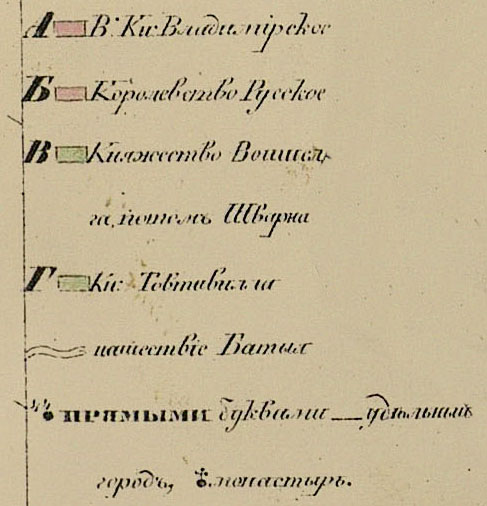 А В. Кн. Владимірское
Б Королевство Русское
В Княжество Воишел-
га, потомъ Шварна
Г Кн. Товтивилла
нашествіе Батыя
ПРЯМЫМИ буквами — удѣльный
городъ, монастырь.